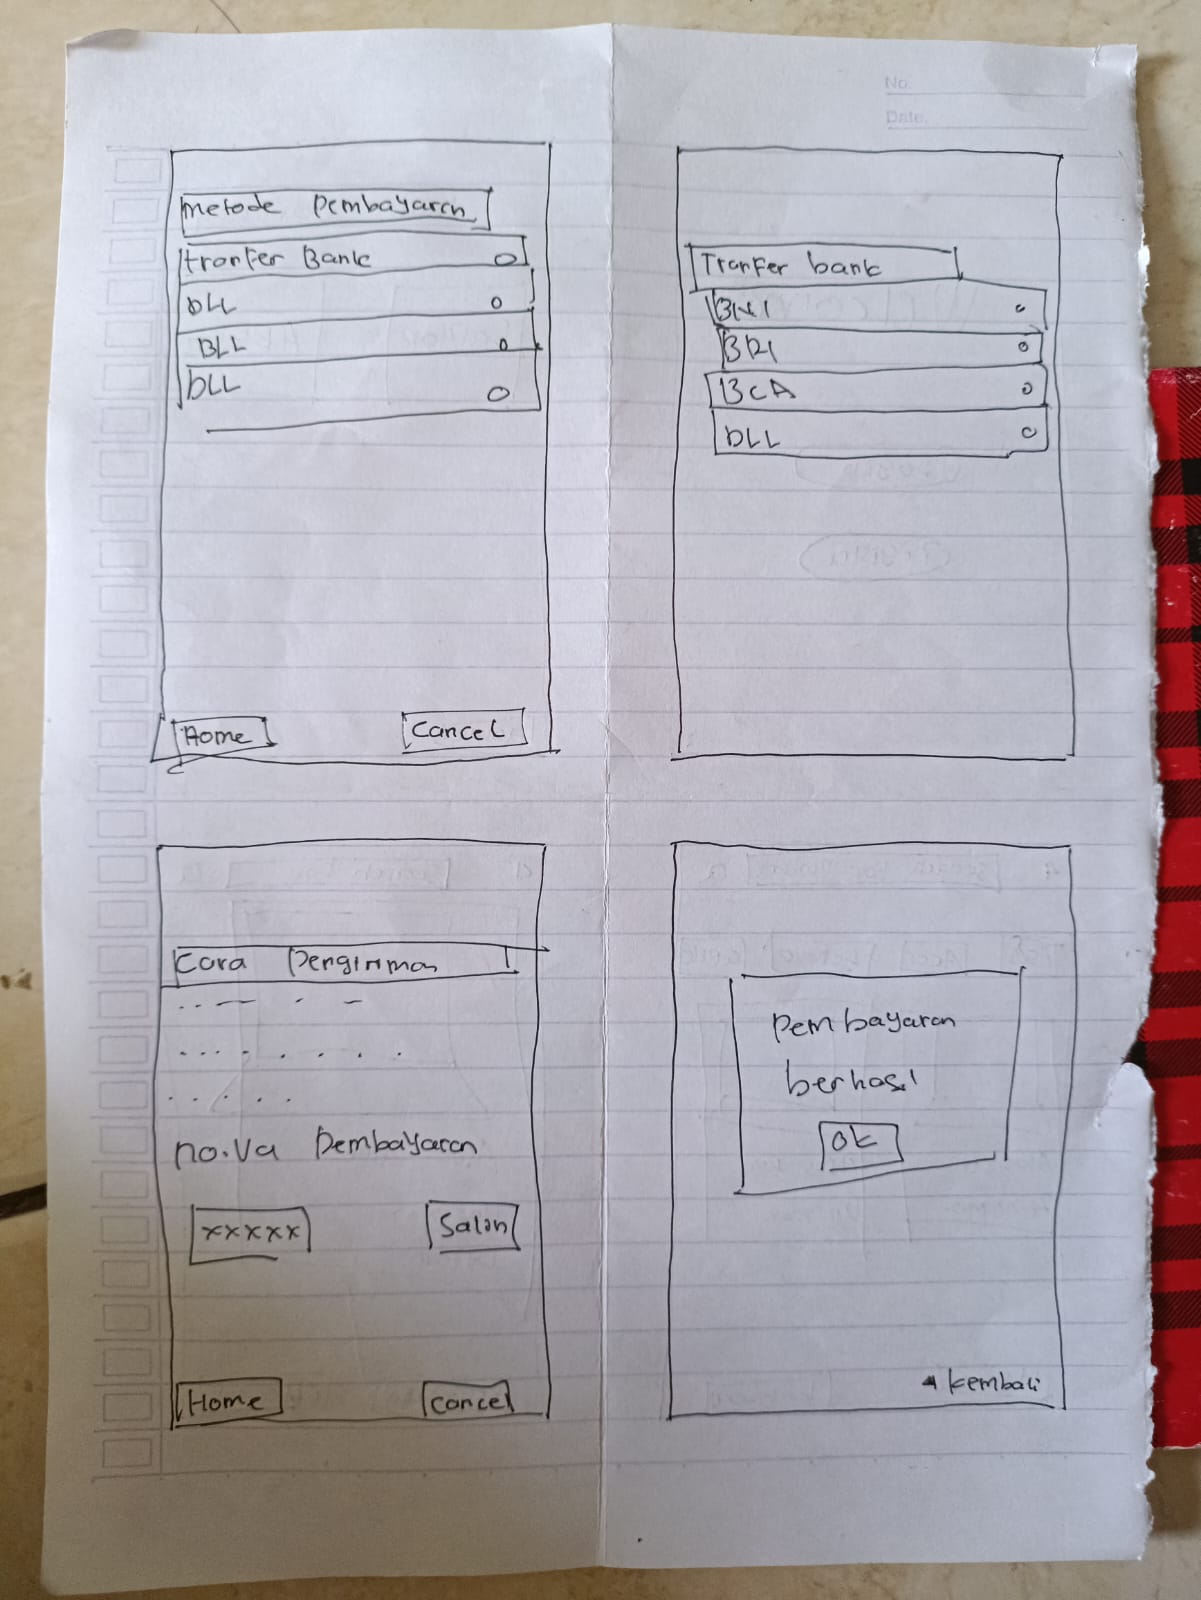 No.
Date.
metode Pembayaran
tranfer Bank
DLL
BLL
DLL
Home
Cancel
Tranfer bank
BNI
BRI
BCA
DLL
Cara Pengiriman
no.Va Pembayaran
xxxxx
Salin
Home
Cancel
Pembayaran
berhasil
Ok
kembali